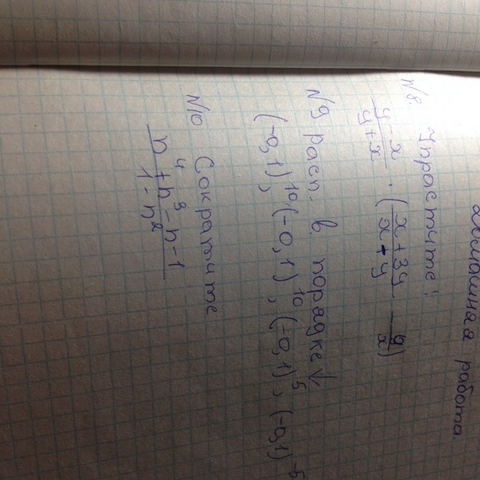 Домашная работа
№8. Упрастите:
y-x/y+x · (x+3y/x+y - y/x)
№9 расп. в порядке ↓
(-0,1)¹⁰, (-0,1)¹⁰, (-0,1)⁵, (-0,1)⁻⁵
№10 Сократите
n⁴+n³-n-1/1-n²